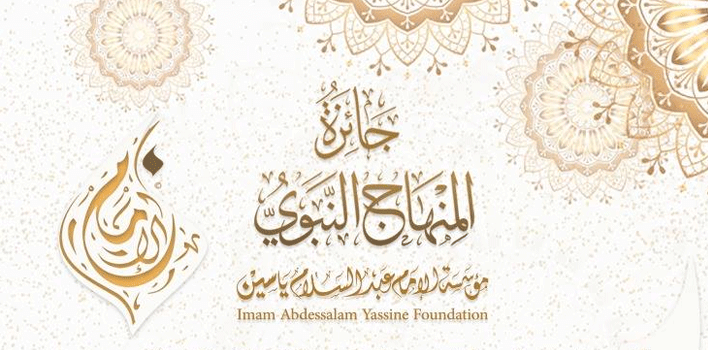 جَائِزَةُ
المِنْهَاجِ النَّبَوِيِّ
مؤسسة الإمام عبد السلام ياسين
Imam Abdessalam Yassine Foundation
الإمام